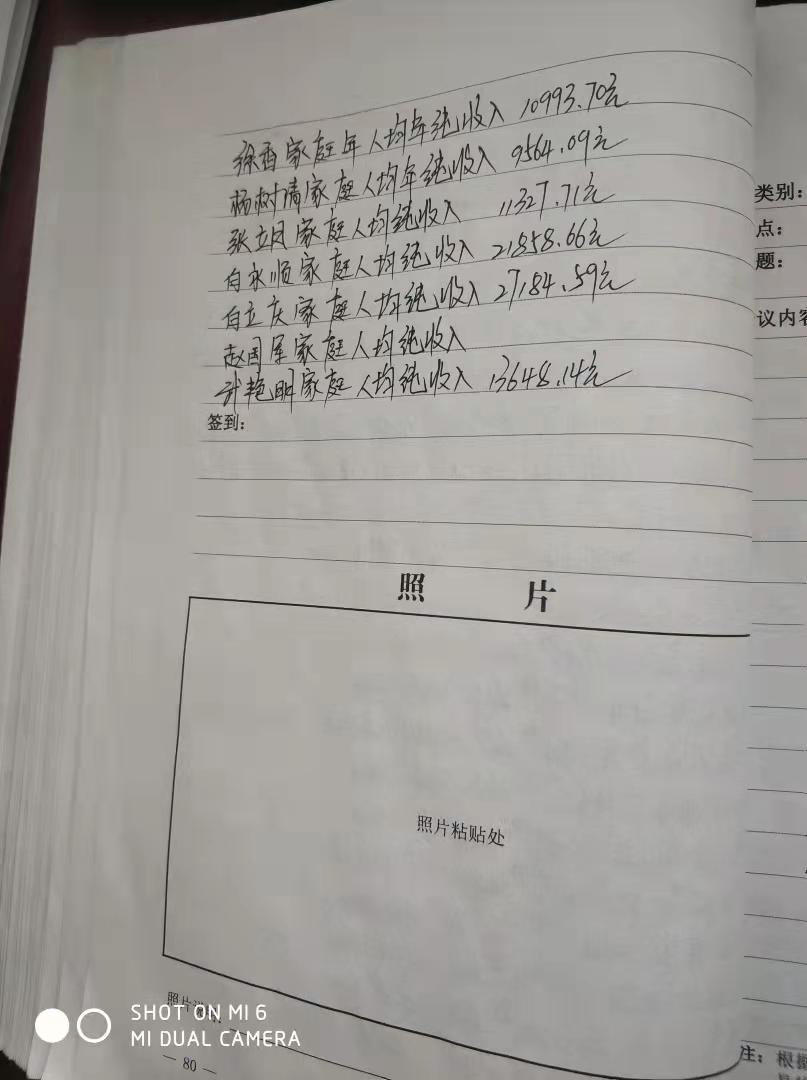 徐香家庭年人均年纯收入 10993.70元
杨树清家庭人均年纯收入 9564.09元
张立凤家庭人均纯收入 11327.71元
白永顺家庭人均纯收入 21858.66元
白立庆家庭人均纯收入 27184.59元
赵国军家庭人均纯收入
计艳明家庭人均纯收入 13648.14元
签到：
照 片
照片粘贴处
照片
SHOT ON MI 6
MI DUAL CAMERA
— 80 —
类别：
点：
题：
议内容
注：根据